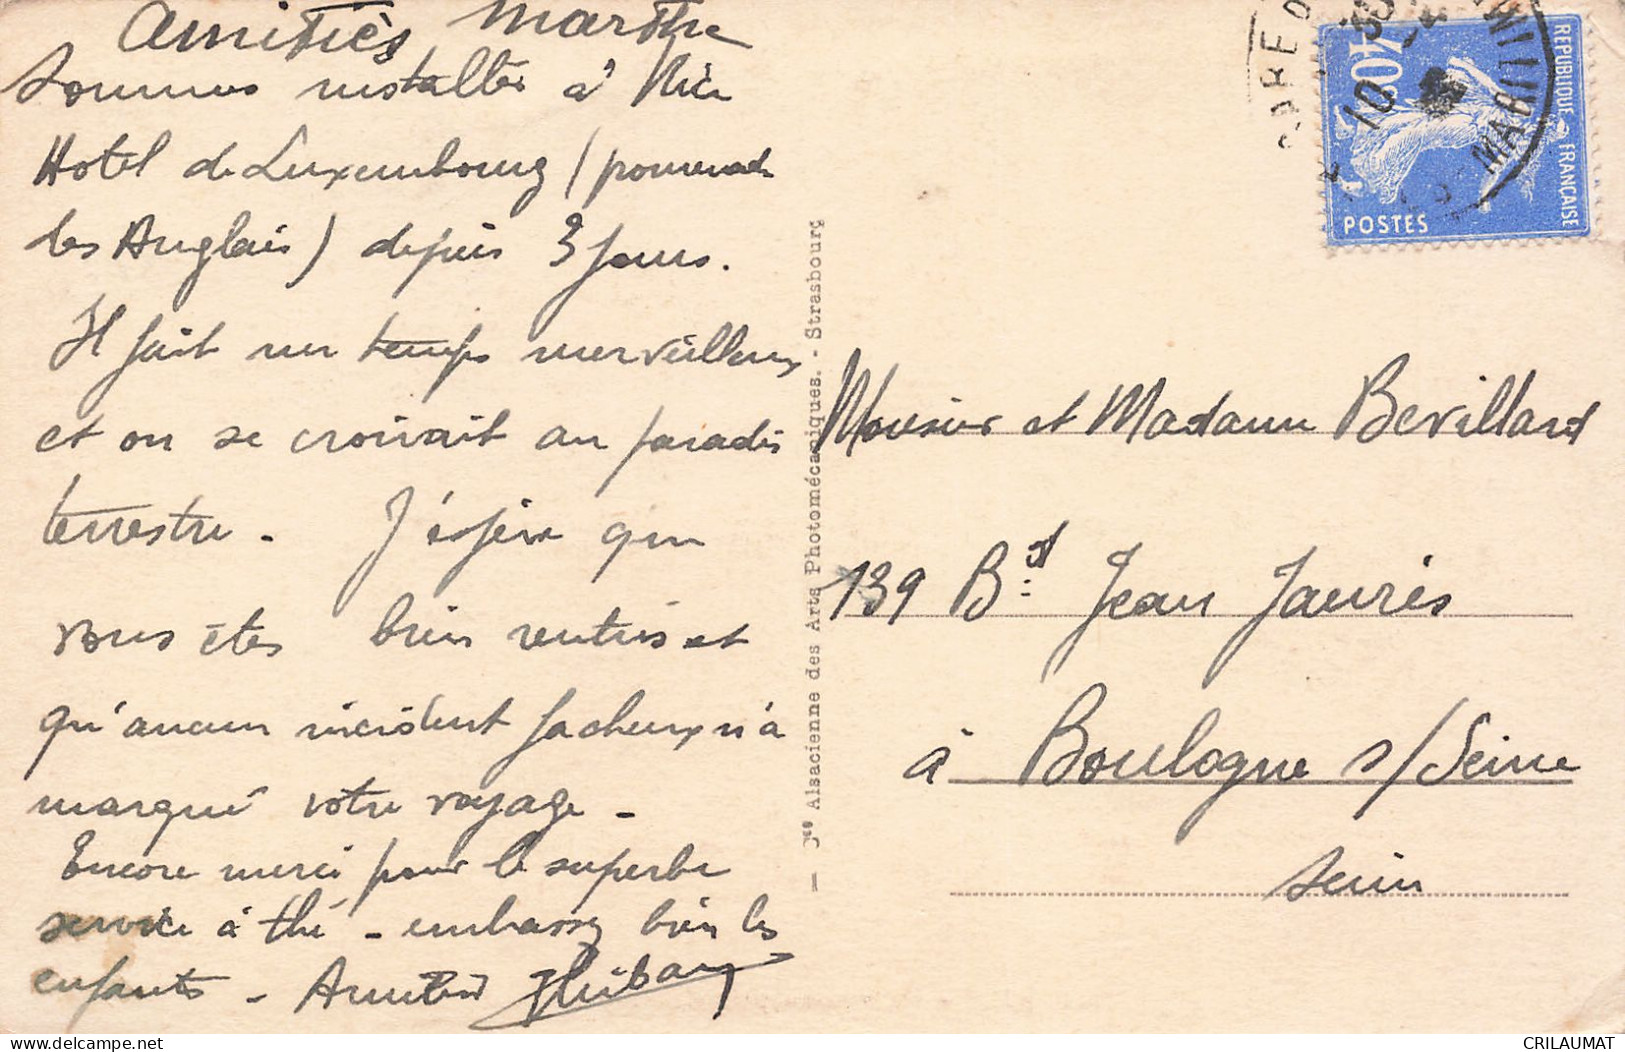 Amitiés Marthe
Sommes installés à Nice
Hotel de Luxembourg (promenade
des Anglais) depuis 3 jours.
Il fait un temps merveilleux
et on se croirait au paradis
terrestre. J'éspère que
vous êtes bien rentrés et
qu'aucun incident facheux n'a
marqué votre voyage -
Encore merci pour le superbe
service à thé - embassez bien les
enfants - Amitiés
Cie Alsacienne des Arts Photomécaniques. - Strasbourg
REPUBLIQUE FRANÇAISE
40c
POSTES
MARITIM
10
Monsieur et Madame Bevillard
139 Bd Jean Jaurès
à Boulogne s/Seine
Seine
CRILAUMAT